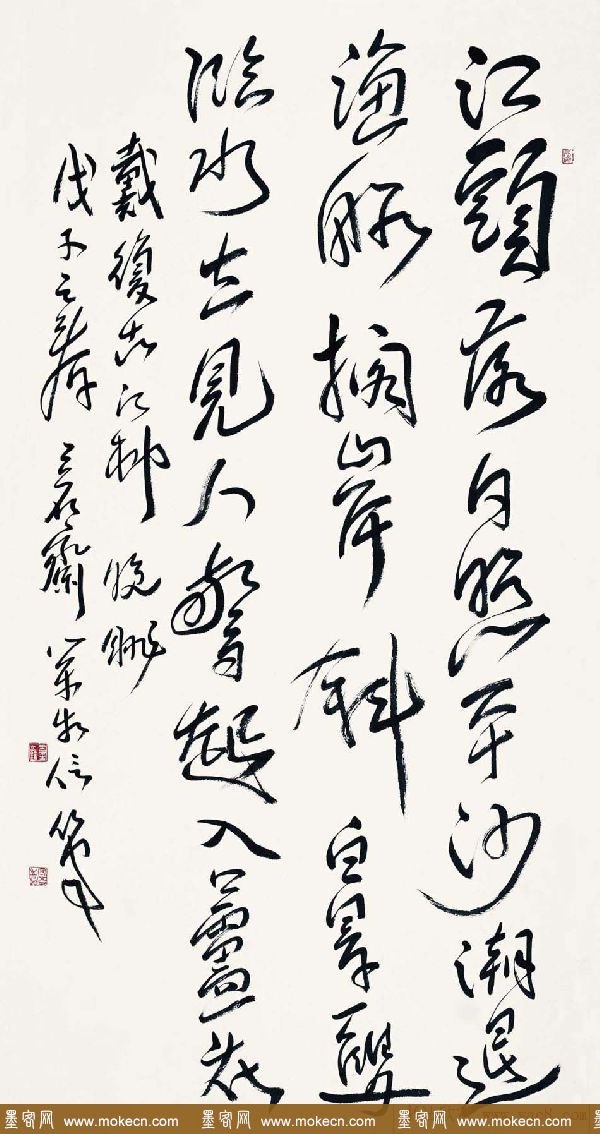 江頭落日照平沙潮退
漁船擱岸斜白鳥一雙
臨水立見人驚起入蘆花
戴復古江村晚眺
戊子之春 齋 信筆
墨客网 www.mokecn.com 墨客网 www.mokecn.com 墨客网 www.mokecn.com